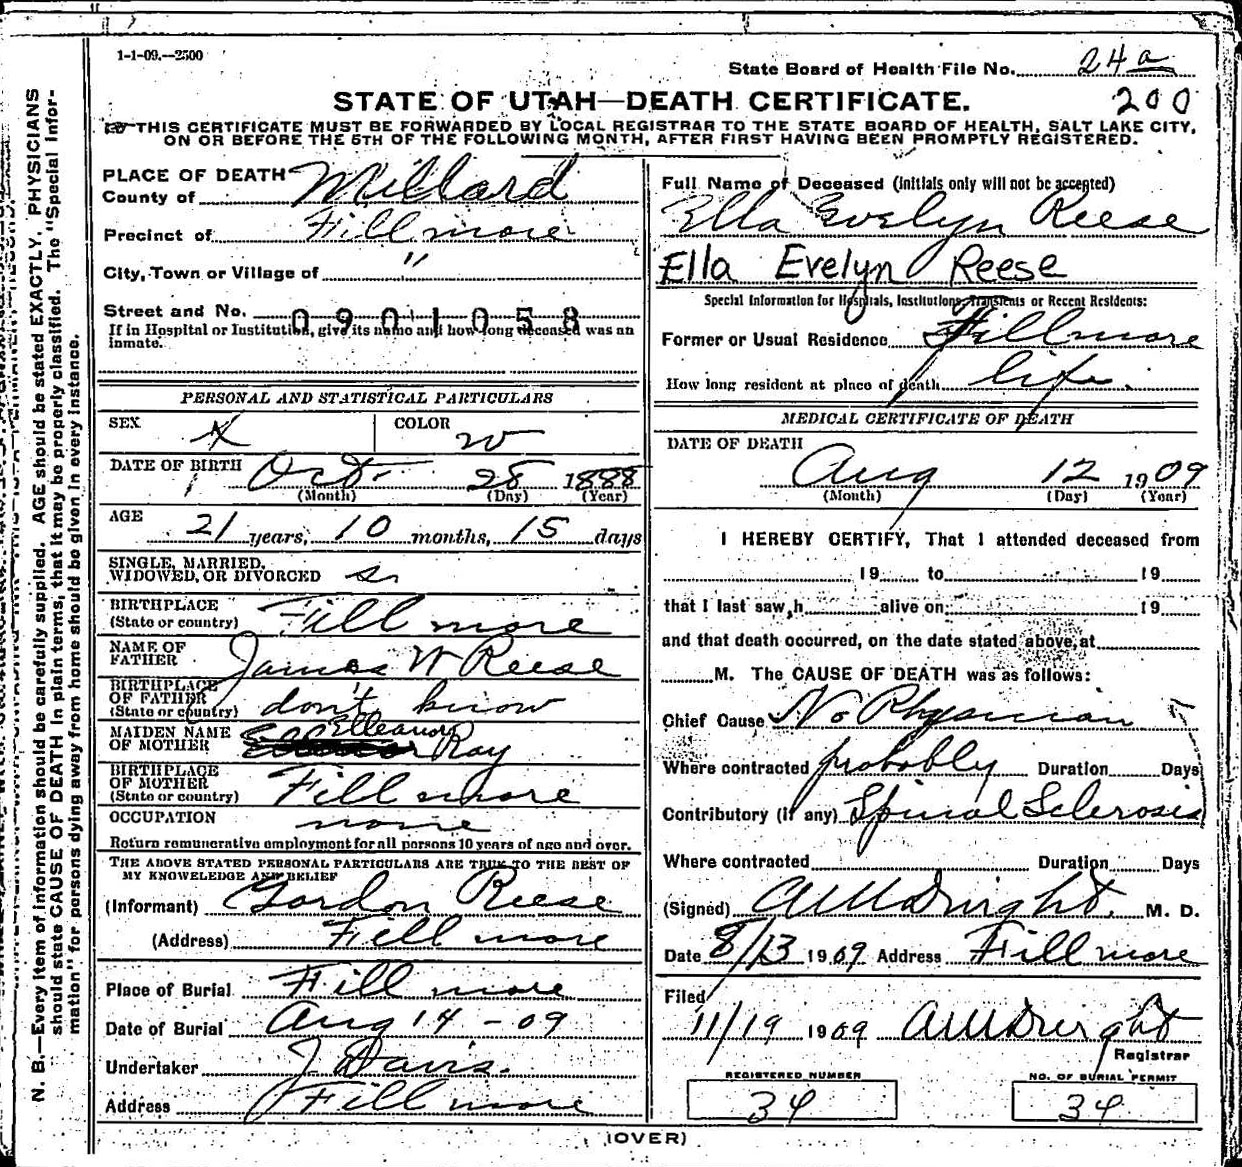 1-1-09.--2500
State Board of Health File No. 24a
200
STATE OF UTAH—DEATH CERTIFICATE.
THIS CERTIFICATE MUST BE FORWARDED BY LOCAL REGISTRAR TO THE STATE BOARD OF HEALTH, SALT LAKE CITY,
ON OR BEFORE THE 5TH OF THE FOLLOWING MONTH, AFTER FIRST HAVING BEEN PROMPTLY REGISTERED.
N. B.—Every item of information should be carefully supplied. AGE should be stated EXACTLY, PHYSICIANS
should state CAUSE OF DEATH in plain terms, that it may be properly classified. The "Special Infor-
mation" for persons dying away from home should be given in every instance.
PLACE OF DEATH
County of Millard
Precinct of Fillmore
City, Town or Village of "
Street and No. 0901058
If in Hospital or Institution, give its name and how long deceased was an
inmate.
PERSONAL AND STATISTICAL PARTICULARS
SEX
COLOR w
DATE OF BIRTH Oct 28 1888
(Month) (Day) (Year)
AGE 21 years, 10 months, 15 days
SINGLE, MARRIED,
WIDOWED, OR DIVORCED s
BIRTHPLACE
(State or country) Fillmore
NAME OF
FATHER James W Reese
BIRTHPLACE
OF FATHER
(State or country) don't know
MAIDEN NAME
OF MOTHER Elleanor Ray
BIRTHPLACE
OF MOTHER
(State or country) Fillmore
OCCUPATION none
Return remunerative employment for all persons 10 years of age and over.
THE ABOVE STATED PERSONAL PARTICULARS ARE TRUE TO THE BEST OF
MY KNOWELEDGE AND BELIEF
(Informant) Gordon Reese
(Address) Fillmore
Place of Burial Fillmore
Date of Burial Aug 14 - 09
Undertaker J Davis.
Address Fillmore
Full Name of Deceased (Initials only will not be accepted)
Ella Evelyn Reese
Ella Evelyn Reese
Special Information for Hospitals, Institutions, Transients or Recent Residents:
Former or Usual Residence Fillmore
How long resident at place of death life.
MEDICAL CERTIFICATE OF DEATH
DATE OF DEATH
Aug 12 1909
(Month) (Day) (Year)
I HEREBY CERTIFY, That I attended deceased from
19 to 19
that I last saw h alive on 19
and that death occurred, on the date stated above, at
M. The CAUSE OF DEATH was as follows:
Chief Cause No Physician
Where contracted probably Duration Days
Contributory (If any) Spinal Sclerosis
Where contracted Duration Days
(Signed) M. D.
Date 8/13 1909 Address Fillmore
Filed
11/19 1909
Registrar
REGISTERED NUMBER
34
NO. OF BURIAL PERMIT
34
(OVER)